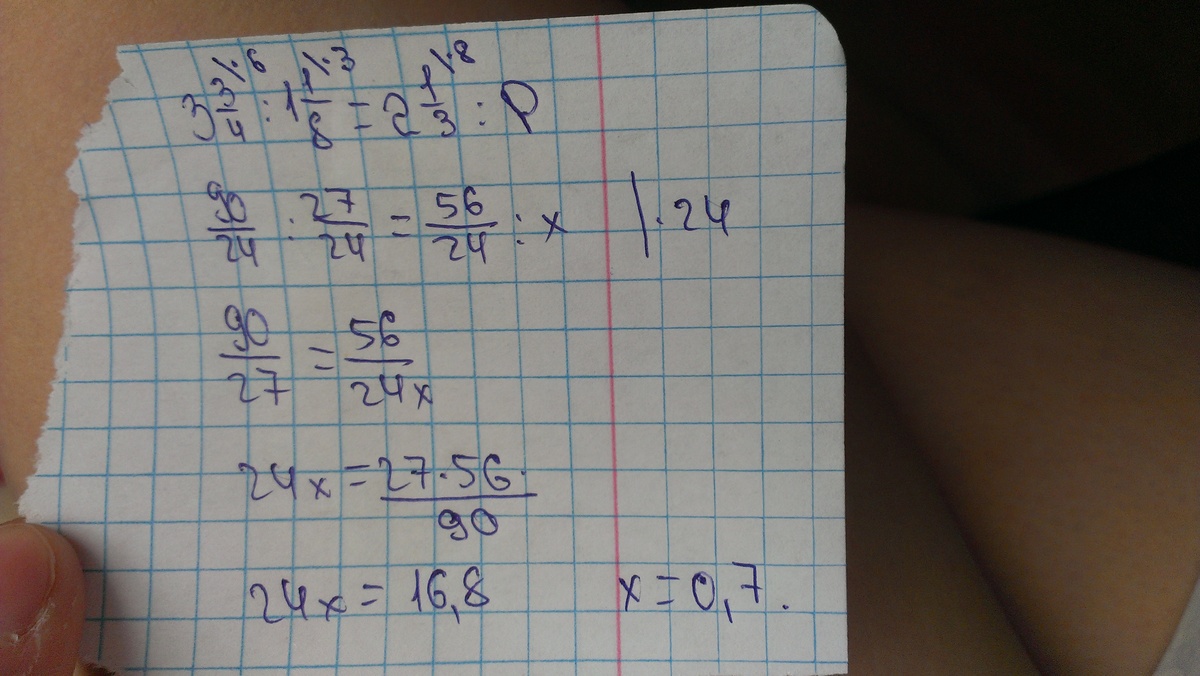 3 3/4 \·6 : 1 1/8 \·3 = 2 1/3 \·8 : P
90/24 : 27/24 = 56/24 : x |·24
90/27 = 56/24x
24x = 27·56·/90
24x = 16,8 x = 0,7.